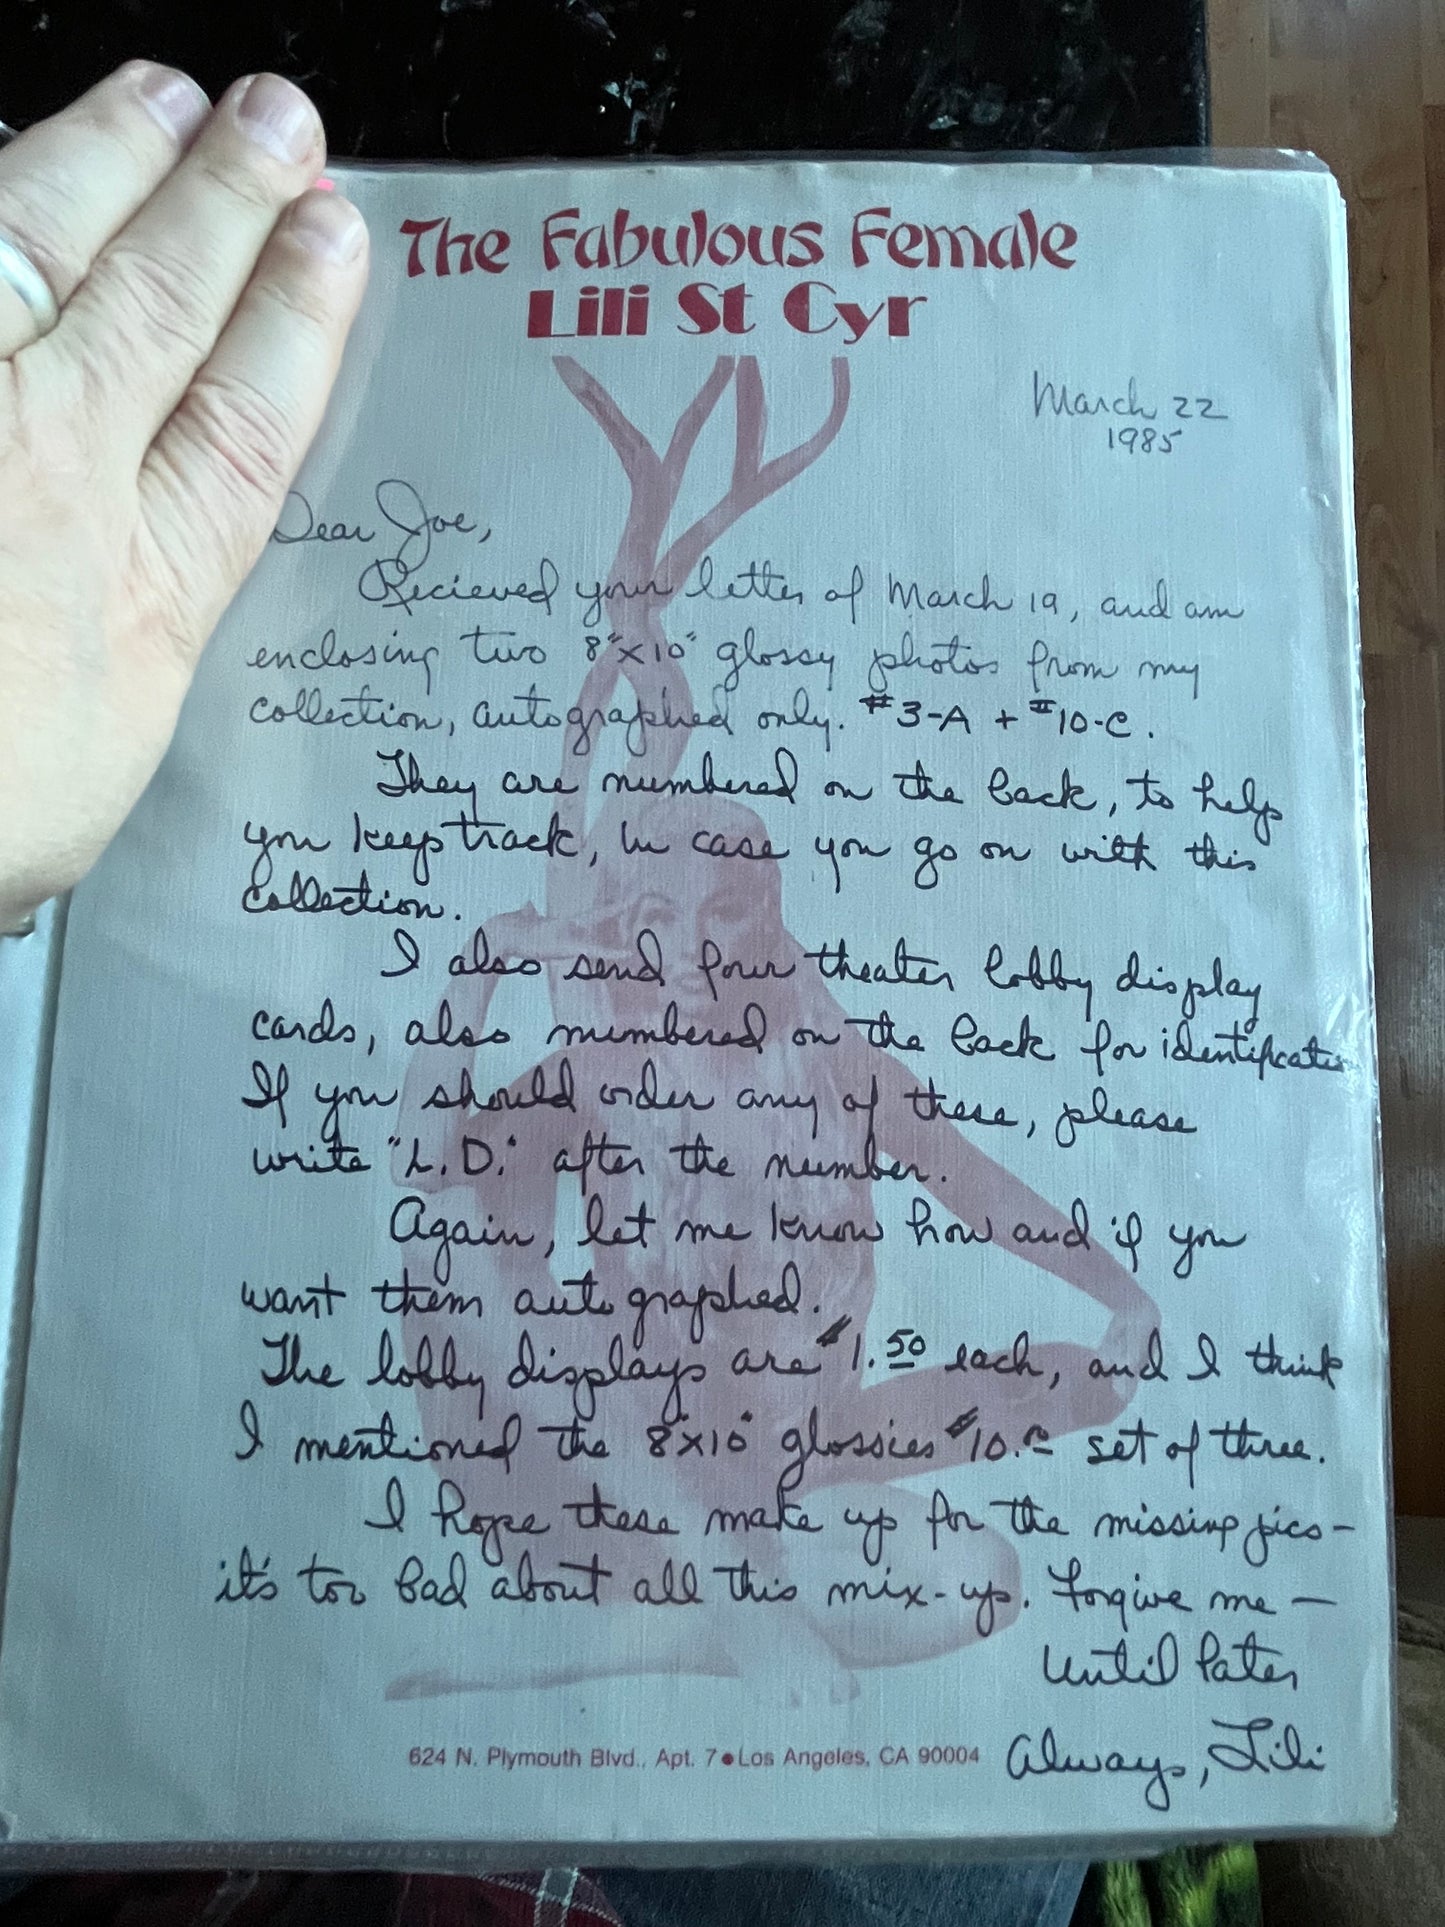 The Fabulous Female
Lili St Cyr
March 22
1985
Dear Joe,
Recieved your letter of March 19, and am
enclosing two 8"x10" glossy photos from my
collection, autographed only. #3-A + #10-C.
They are numbered on the back, to help
you keep track, in case you go on with this
collection.
I also send four theater lobby display
cards, also numbered on the back for identification
If you should order any of these, please
write "L.D." after the number.
Again, let me know how and if you
want them autographed.
The lobby displays are $1.50 each, and I think
I mentioned the 8"x10" glossies $10.00 set of three.
I hope these make up for the missing pics—
it's too bad about all this mix-up. Forgive me —
Until later
Always, Lili
624 N. Plymouth Blvd., Apt. 7 • Los Angeles, CA 90004